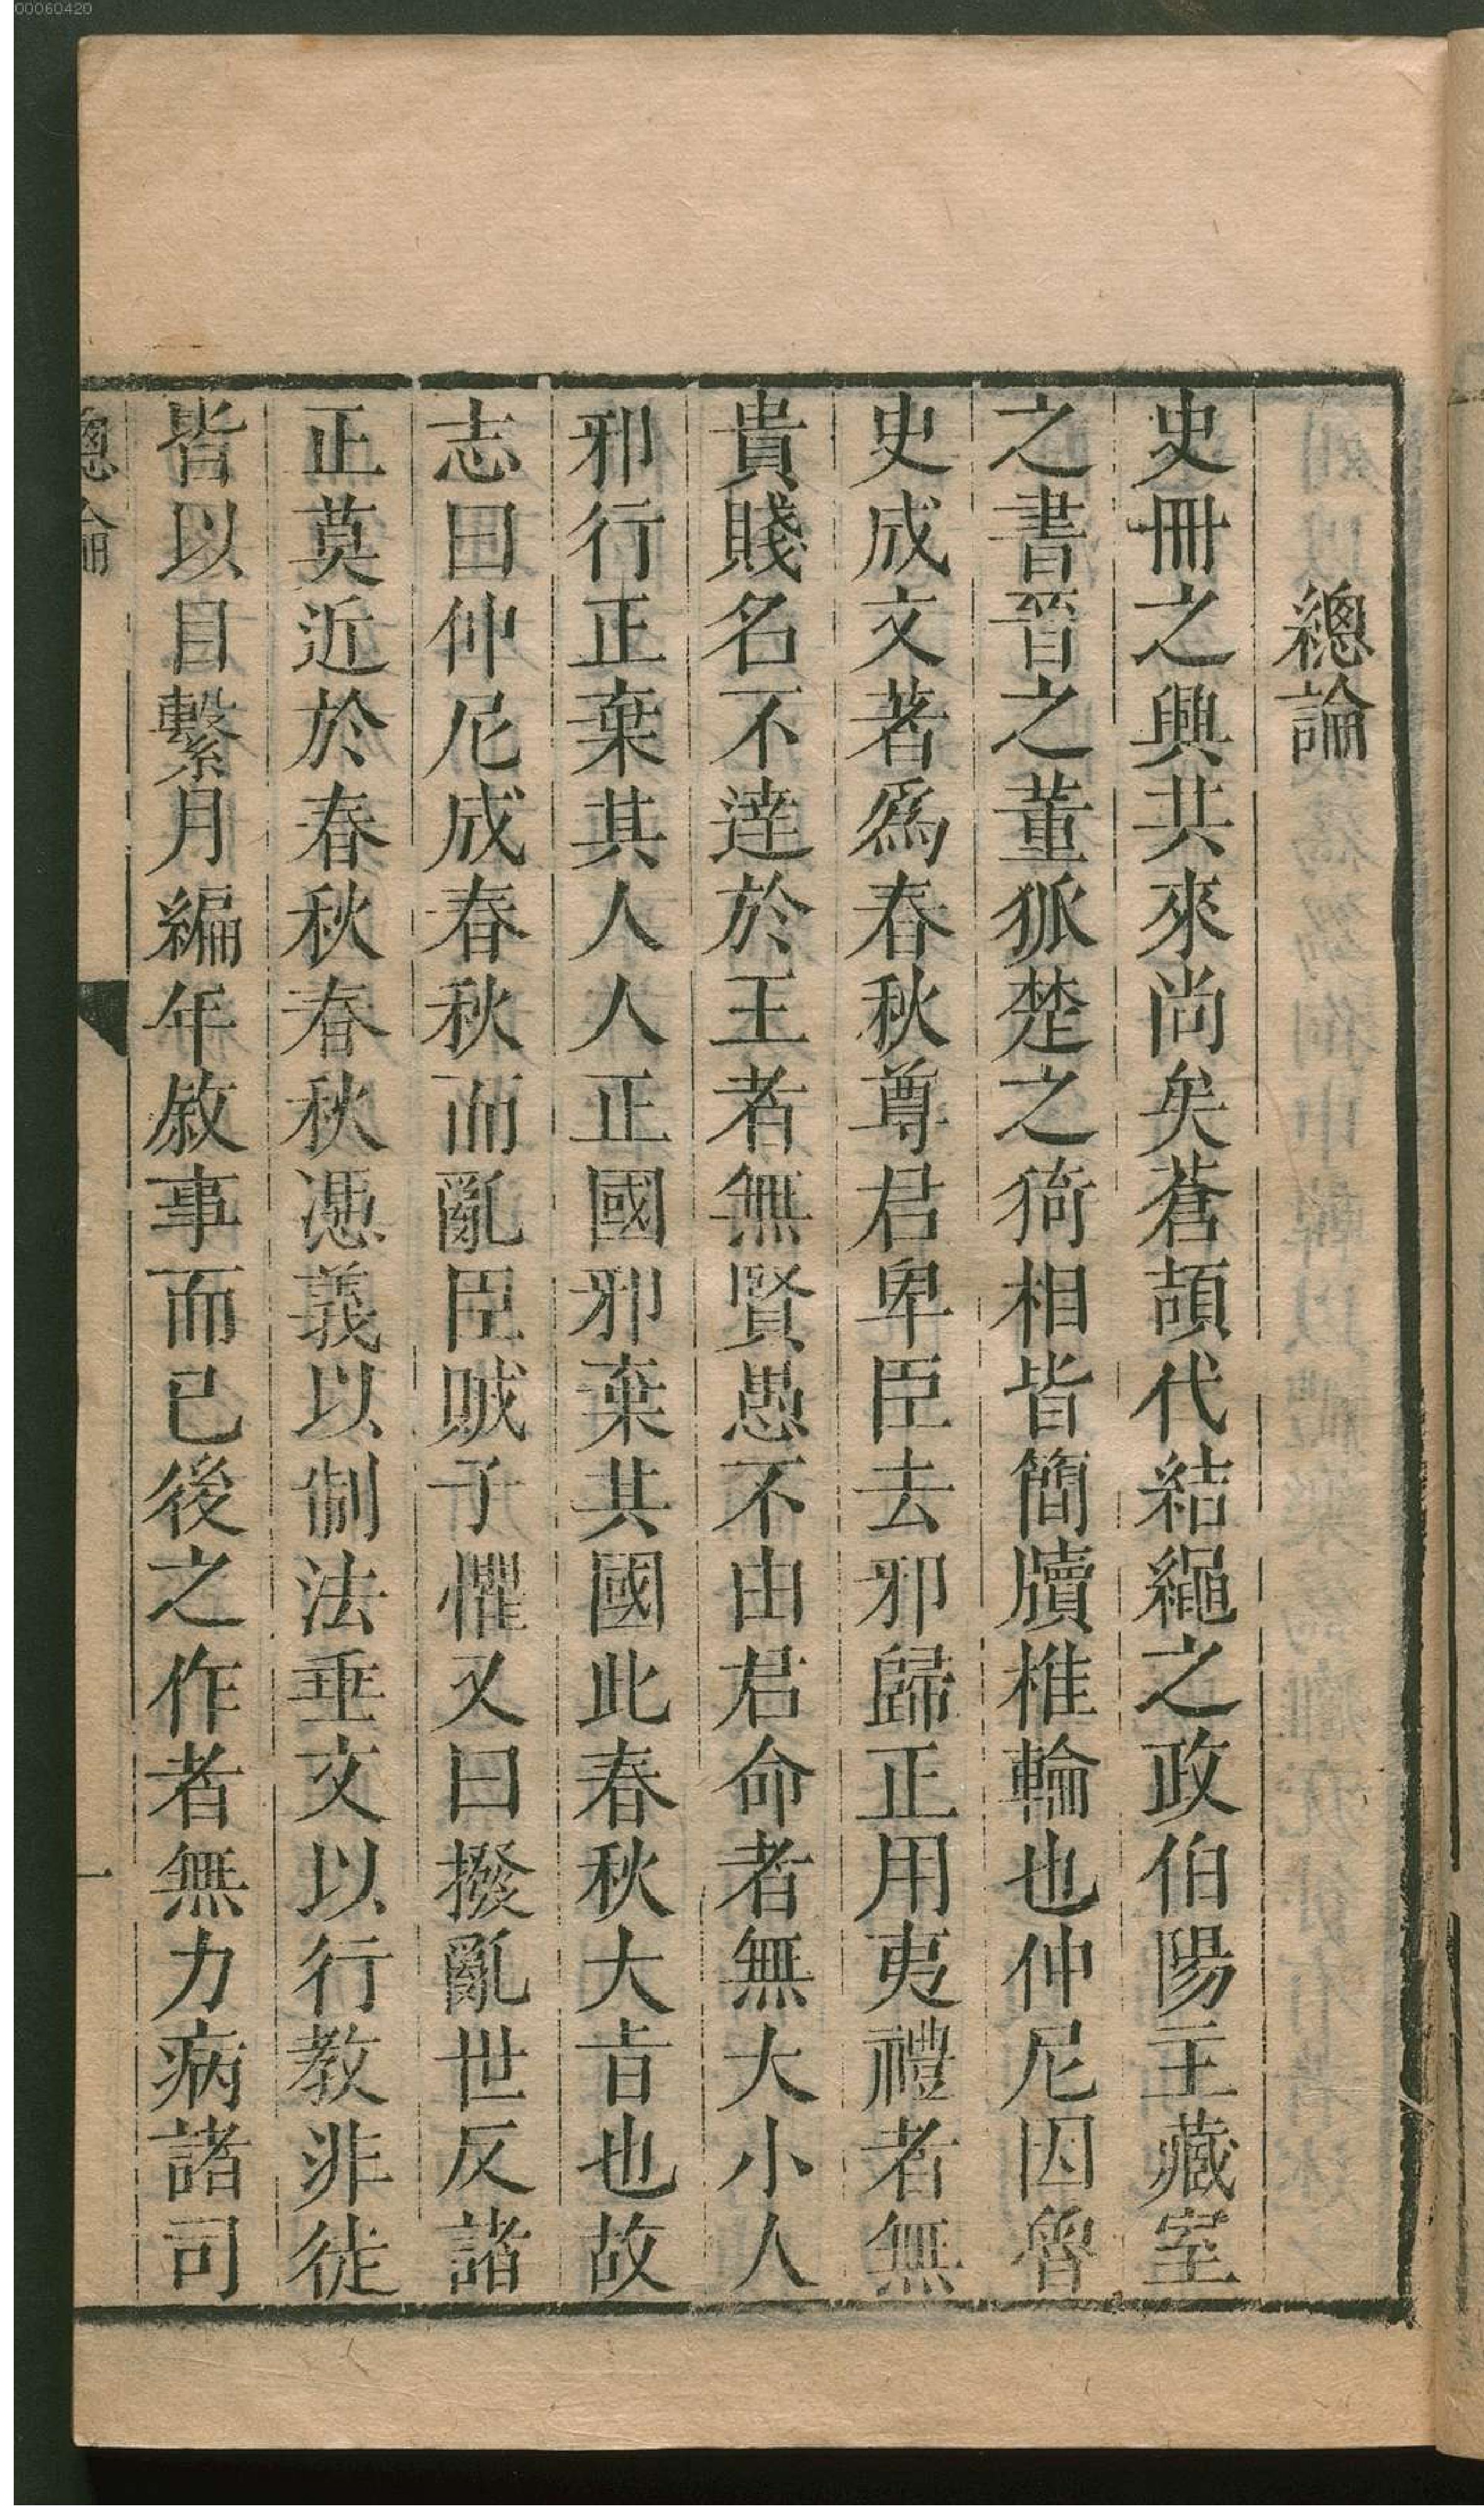 00060420
總論
史冊之興其來尚矣蒼頡代結繩之政伯陽主藏室
之書晉之董狐楚之猗相皆簡牘椎輪也仲尼因魯
史成文著爲春秋尊君卑臣去邪歸正用夷禮者無
貴賤名不達於王者無賢愚不由君命者無大小人
邪行正棄其人人正國邪棄其國此春秋大旨也故
志曰仲尼成春秋而亂臣賊子懼又曰撥亂世反諸
正莫近於春秋春秋憑義以制法垂文以行教非徒
皆以目繫月編年敘事而已後之作者無力病諸司
總論
一